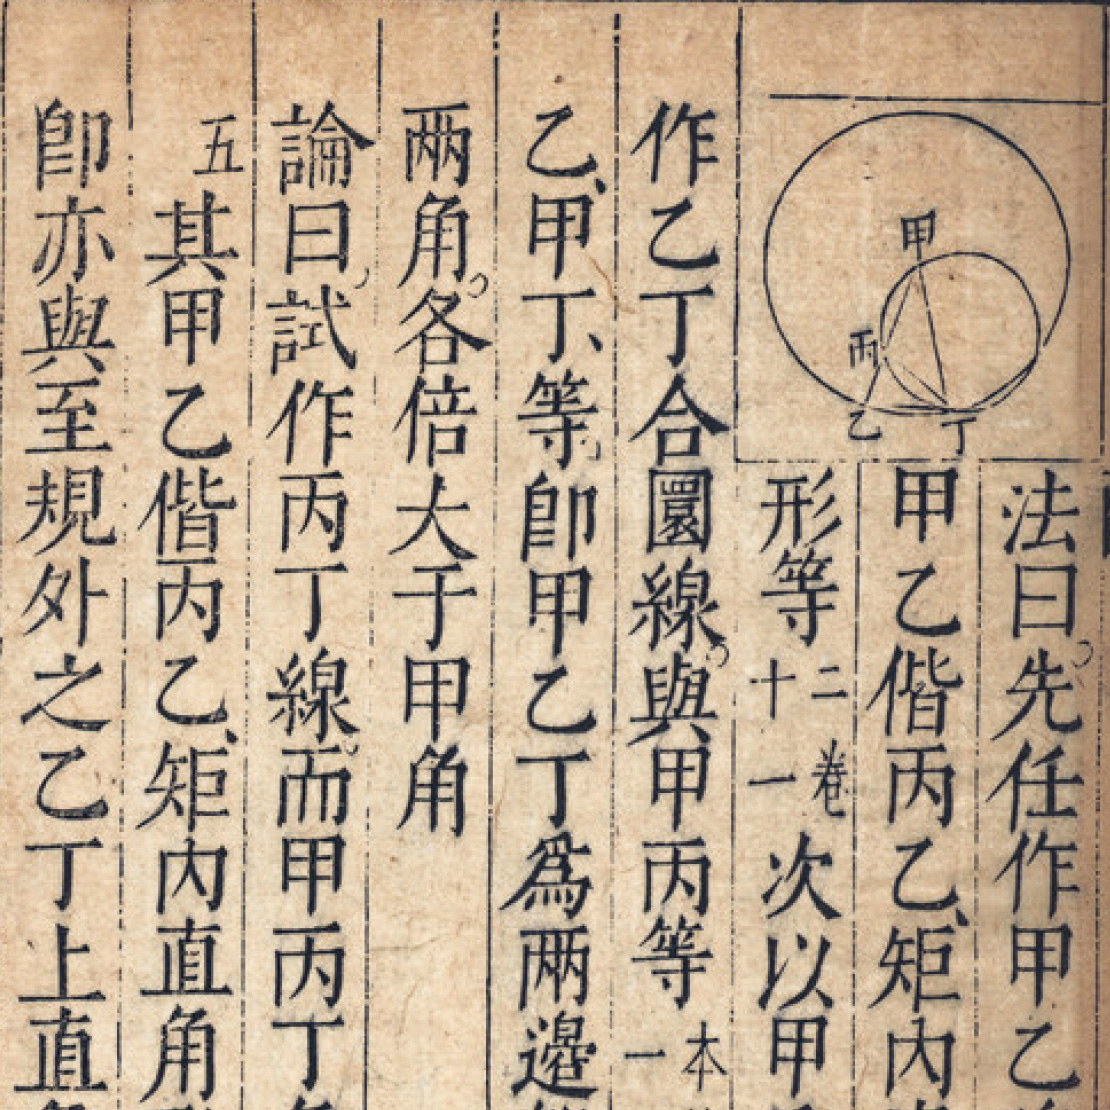 甲
丙
乙 丁
法曰先任作甲乙
甲乙偕丙乙、矩内
形等二卷十一次以甲
作乙丁合圜線與甲丙等本一
乙、甲丁、等即甲乙丁為兩邊
兩角各倍大于甲角
論曰試作丙丁線而甲丙丁
五其甲乙偕丙乙、矩內直角
即亦與至規外之乙丁上直